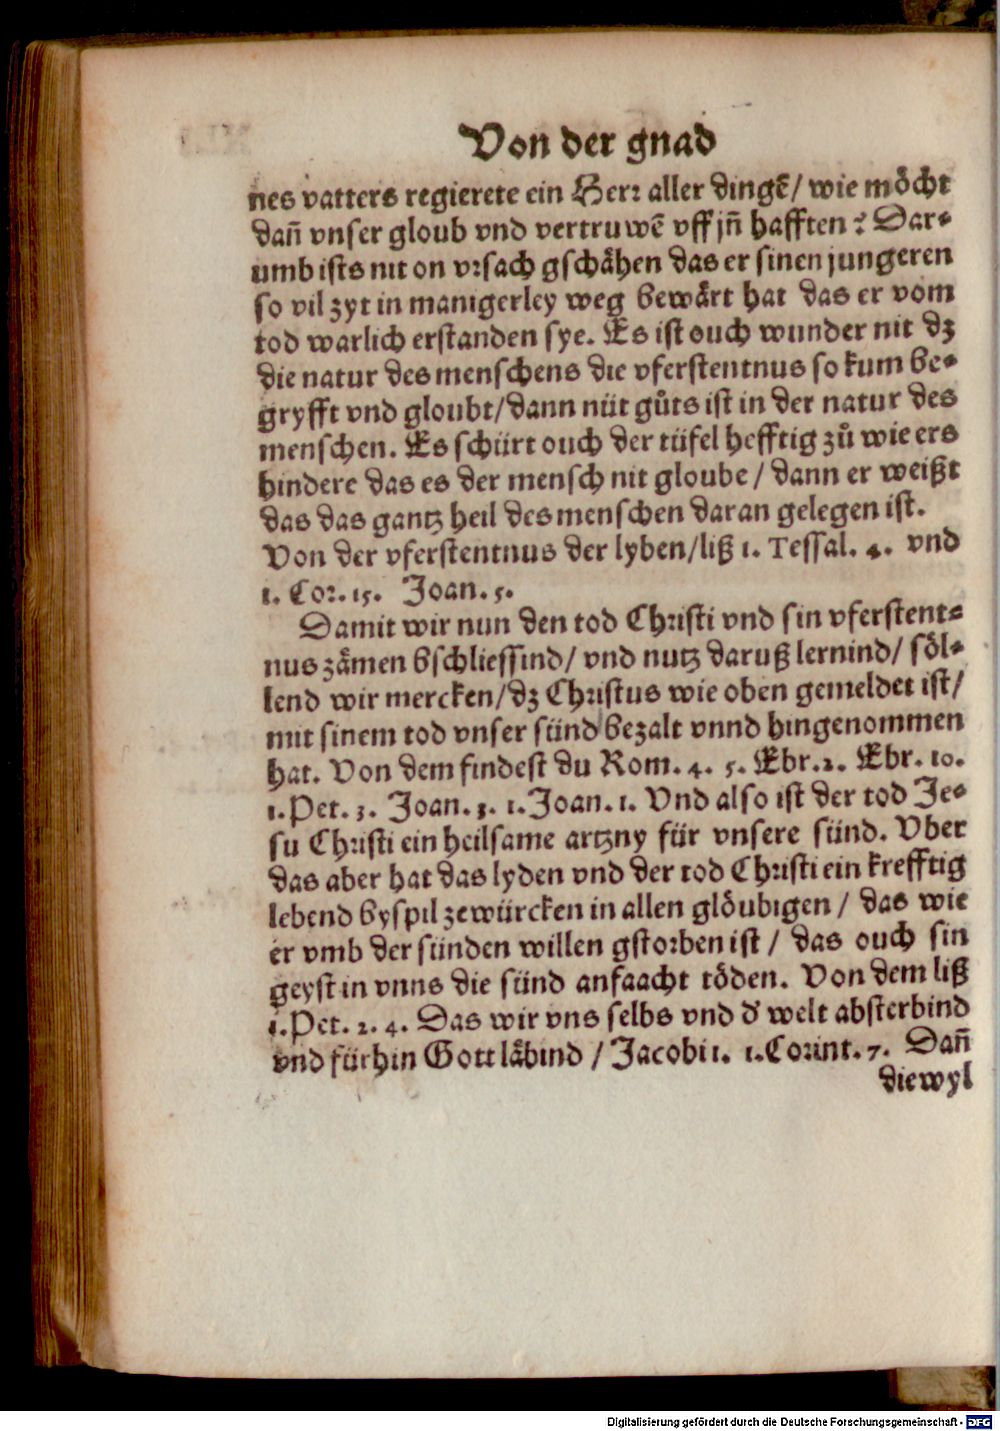 Von der gnad
nes vatters regierete ein Herr aller dingē/ wie möcht
dañ vnser gloub vnd vertruwē vff jñ hafften? Dar-
umb ists nit on vrsach gschähen das er sinen jungeren
so vil zyt in manigerley weg bewärt hat das er vom
tod warlich erstanden sye. Es ist ouch wunder nit dz
die natur des menschens die vferstentnus so kum be-
gryfft vnd gloubt/dann nüt gůts ist in der natur des
menschen. Es schürt ouch der tüfel hefftig zů wie ers
hindere das es der mensch nit gloube/ dann er weißt
das das gantz heil des menschen daran gelegen ist.
Von der vferstentnus der lyben/liß 1. Tessal. 4. vnd
1. Cor. 15. Joan. 5.
Damit wir nun den tod Christi vnd sin vferstent-
nus zämen bschliessind/ vnd nutz daruß lernind/ söl-
lend wir mercken/dz Christus wie oben gemeldet ist/
mit sinem tod vnser sünd bezalt vnnd hingenommen
hat. Von dem findest du Rom. 4. 5. Ebr. 2. Ebr. 10.
1. Pet. 3. Joan. 3. 1. Joan. 1. Vnd also ist der tod Je-
su Christi ein heilsame artzny für vnsere sünd. Vber
das aber hat das lyden vnd der tod Christi ein krefftig
lebend byspil zewürcken in allen glöubigen/ das wie
er vmb der sünden willen gstorben ist/ das ouch sin
geyst in vnns die sünd anfaacht töden. Von dem liß
1. Pet. 2. 4. Das wir vns selbs vnd d' welt absterbind
vnd fürhin Gott läbind/ Jacobi 1. 1. Corint. 7. Dañ
diewyl
Digitalisierung gefördert durch die Deutsche Forschungsgemeinschaft - DFG